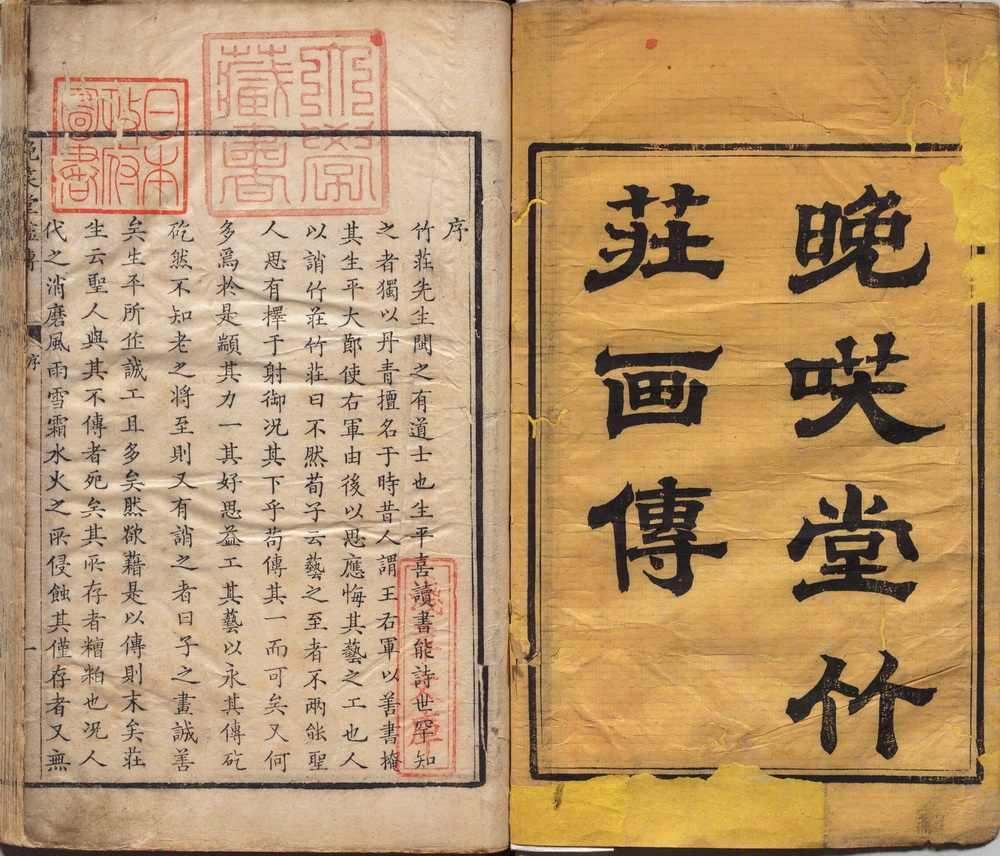 晚咲堂竹
莊画傳
序
竹莊先生閩之有道士也生平喜讀書能詩世罕知
之者獨以丹青擅名于時昔人謂王右軍以善書掩
其生平大鄭使右軍由後以思應悔其藝之工也人
以誚竹莊竹莊曰不然荀子云藝之至者不兩能聖
人思有擇于射御况其下乎苟傳其一而可矣又何
多爲於是顓其力一其好思益工其藝以永其傳矻
矻然不知老之将至則又有誚之者曰子之畫誠善
矣生平所作誠工且多矣然欲藉是以傳則末矣莊
生云聖人與其不傳者死矣其所存者糟粕也况人
代之消磨風雨雪霜水火之所侵蝕其僅存者又無
序
一
大學藏書
日本政府圖書
淺草文庫